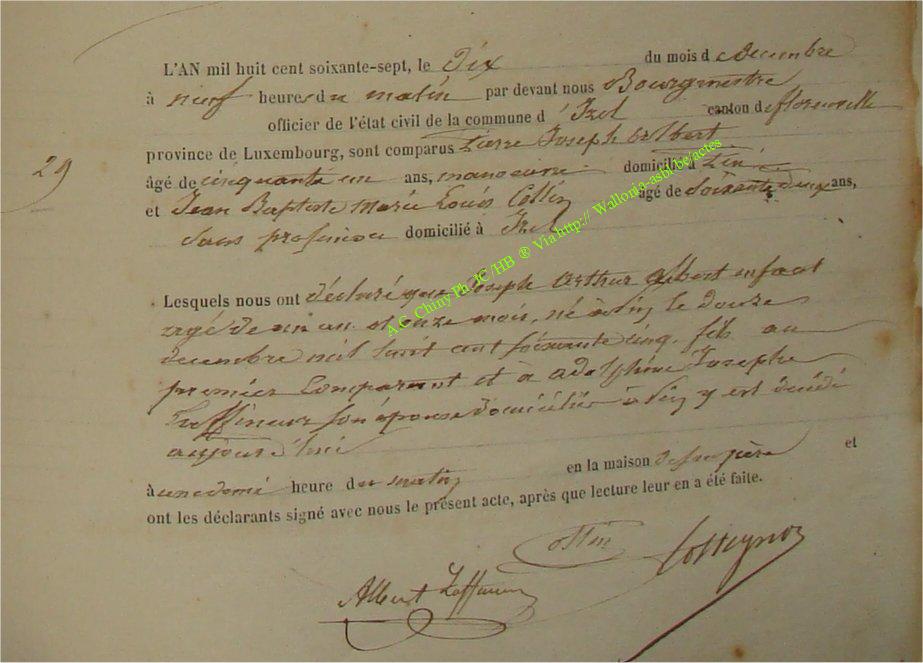 L'AN mil huit cent soixante-sept, le Dix du mois d e decembre
à neuf heures du matin par devant nous Bourgmestre
officier de l'état civil de la commune d 'Izel canton de florenville
29
province de Luxembourg, sont comparus Pierre Joseph Albert
âgé de cinquante un ans, manoeuvre domicilié à
et Jean Baptiste Marie Louis Collin âgé de Soixante deux ans,
sans profession domicilié à Izel
Lesquels nous ont déclaré que Joseph Arthur Albert enfant
agé de un an et onze mois, né à le douze
decembre mil huit cent soixante cinq, fils au
premier Comparant et a adolphine Josephe
son épouse domiciliés à y est décédé
aujourd'hui
à une demi heure du matin en la maison de son père et
ont les déclarants signé avec nous le présent acte, après que lecture leur en a été faite.
Collin
Albert
A.C. Chiny Ph.JC/HB ® Via http:// Wallonia-asbl.be/actes